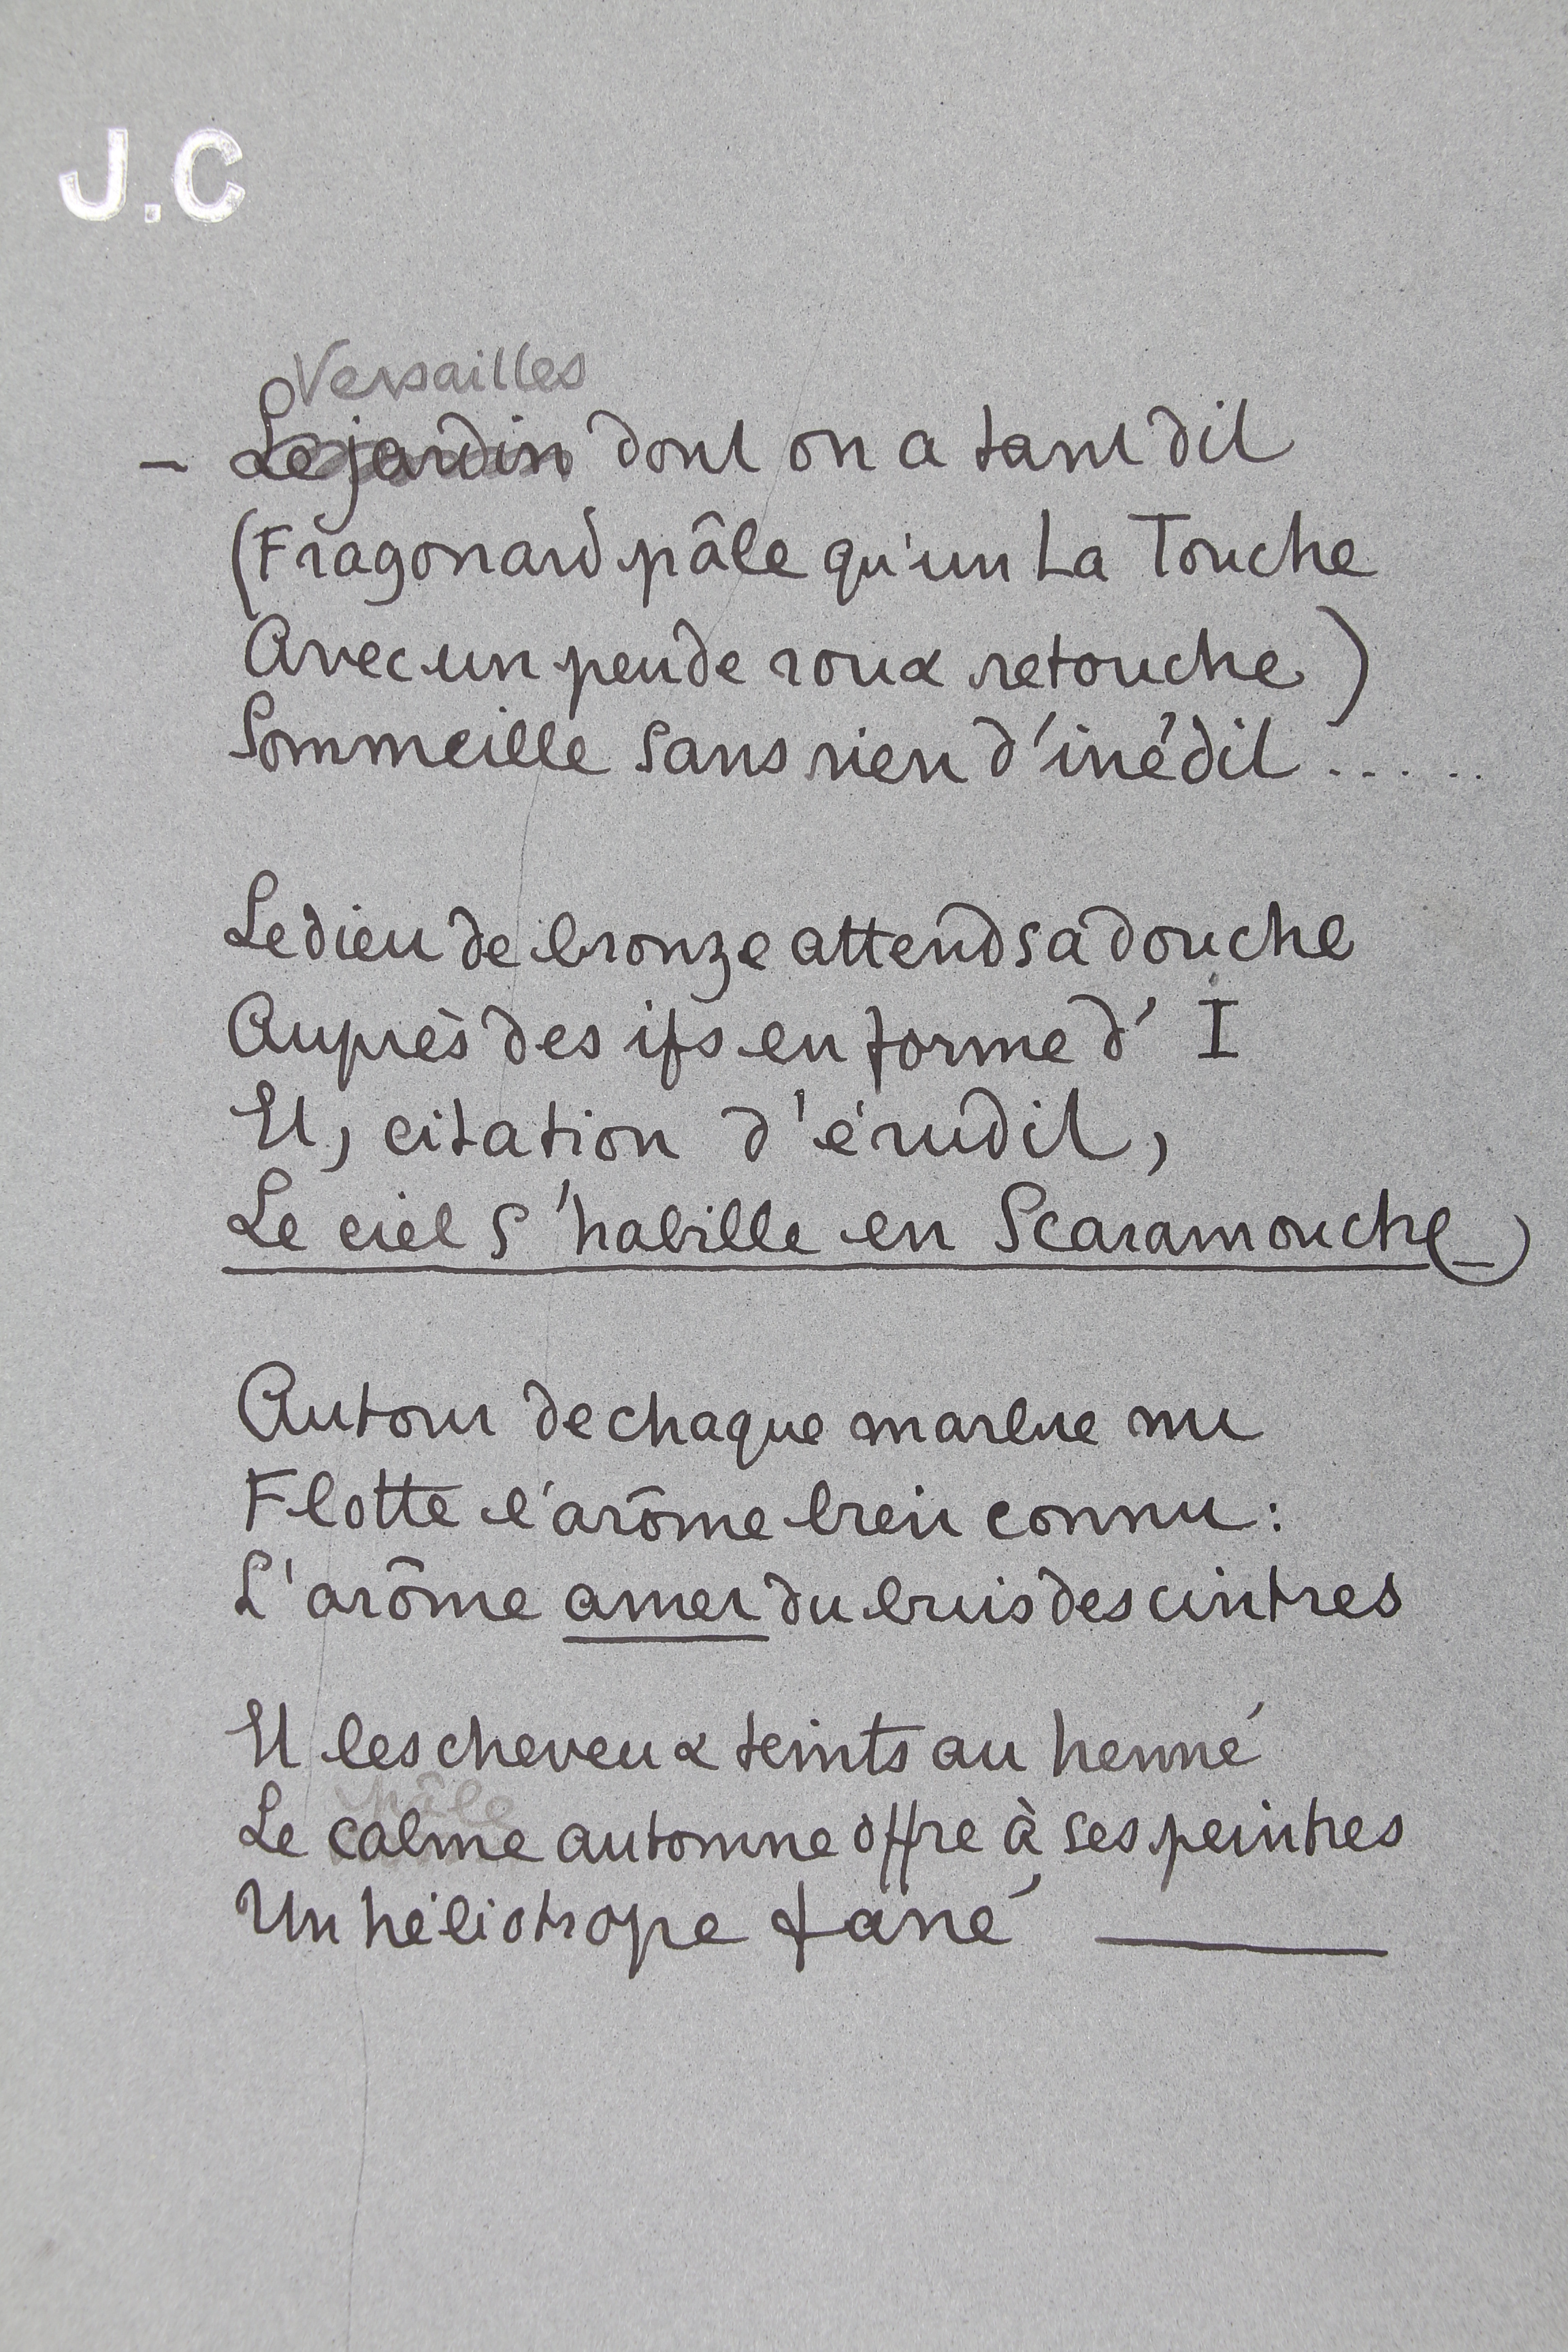 J.C
Versailles
– Le jardin dont on a tant dit
(Fragonard pâle qu'un La Touche
Avec un peu de roux retouche)
Sommeille sans rien d'inédit .....
Le dieu de bronze attend sa douche
Auprès des ifs en forme d' I
Et, citation d'érudit,
Le ciel s'habille en Scaramouche_)
Autour de chaque marbre nu
Flotte l'arôme bien connu :
L'arôme amer du buis des cintres
Et les cheveux teints au henné
pâle
Le calme automne offre à ses peintres
Un héliotrope fané ——